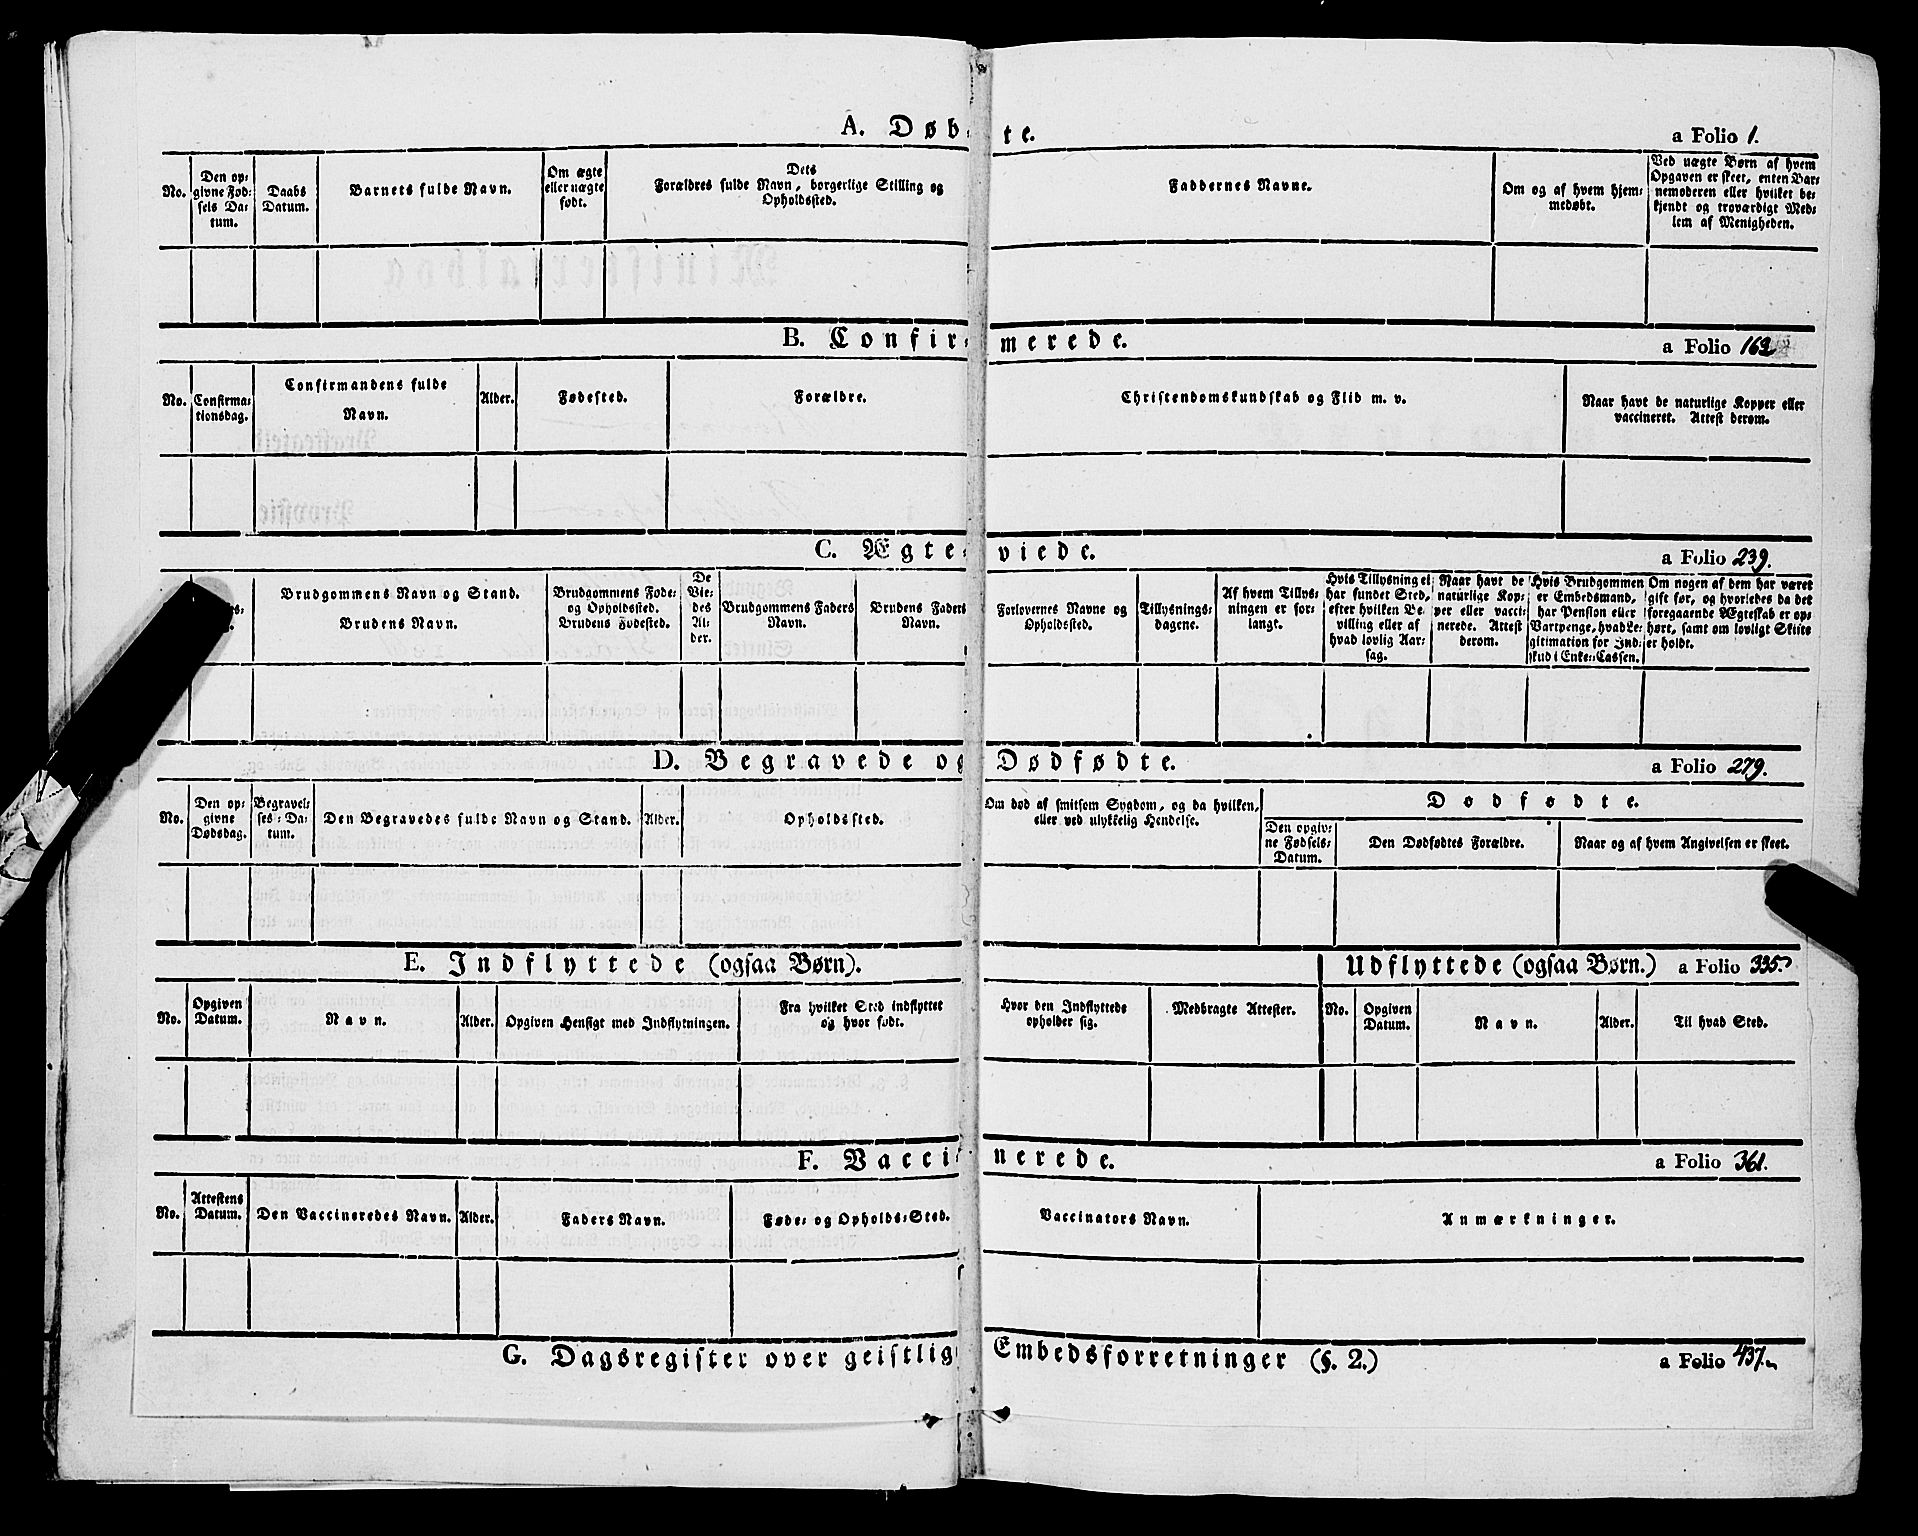 A. Døbte. a Folio 1.
No.
Den op-
givne Fød-
sels Da-
tum.
Daabs
Datum.
Barnets fulde Navn.
Om ægte
eller uægte
født.
Dets
Forældres fulde Navn, borgerlige Stilling og
Opholdssted.
Faddernes Navne.
Om og af hvem hjem-
medøbt.
Ved uægte Børn af hvem
Opgaven er skeet, enten Bar-
nemoderen eller hvilket be-
kjendt og troværdigt Med-
lem af Menigheden.
B. Confirmerede. a Folio 162
No.
Confirma-
tionsdag.
Confirmandens fulde
Navn.
Alder.
Fødested.
Forældre.
Christendomskundskab og Flid m. v.
Naar havt de naturlige Kopper eller
vaccineret. Attest derom.
C. Ægteviede. a Folio 239.
Brudgommens Navn og Stand.
Brudens Navn.
Brudgommens Føde-
og Opholdssted.
Brudens Fødested.
De
Vie-
des
Al-
der.
Brudgommens Faders
Navn.
Brudens Faders
Navn.
Forlovernes Navne og
Opholdssted.
Tillysnings-
dagene.
Af hvem Tillys-
ningen er for-
langt.
Hvis Tillysning ei
har fundet Sted,
efter hvilken Be-
villing eller af
hvad lovlig Aar-
sag.
Naar havt de
naturlige Kop-
per eller vacci-
nerede. Attest
derom.
Hvis Brudgommen
er Embedsmand,
har Pension eller
Vartpenge, hvad Le-
gitimation for Ind-
skud i Enke-Cassen.
Om nogen af dem har været
gift før, og hvorledes da det
foregaaende Ægteskab er op-
hørt, samt om lovligt Skifte
er holdt.
D. Begravede og Dødfødte. a Folio 279.
No.
Den op-
givne
Dødsdag.
Begravel-
ses-Da-
tum.
Den Begravedes fulde Navn og Stand.
Alder.
Opholdssted.
Om død af smitsom Sygdom, og da hvilken,
eller ved ulykkelig Hendelse.
Dødfødte.
Den opgiv-
ne Fødsels-
Datum.
Den Dødfødtes Forældre.
Naar og af hvem Angivelsen er skeet.
E. Indflyttede (ogsaa Børn). Udflyttede (ogsaa Børn.) a Folio 335.
No.
Opgiven
Datum.
Navn.
Alder.
Opgiven Hensigt med Indflytningen.
Fra hvilket Sted indflyttet
og hvor født.
Hvor den Indflyttede
opholder sig.
Medbragte Attester.
No.
Opgiven
Datum.
Navn.
Alder.
Til hvad Sted.
F. Vaccinerede. a Folio 361.
No.
Attestens
Datum.
Den Vaccineredes Navn.
Alder.
Faders Navn.
Føde- og Opholds-Sted.
Vaccinators Navn.
Anmærkninger.
G. Dagsregister over geistlig Embedsforretninger (§. 2.) a Folio 437.